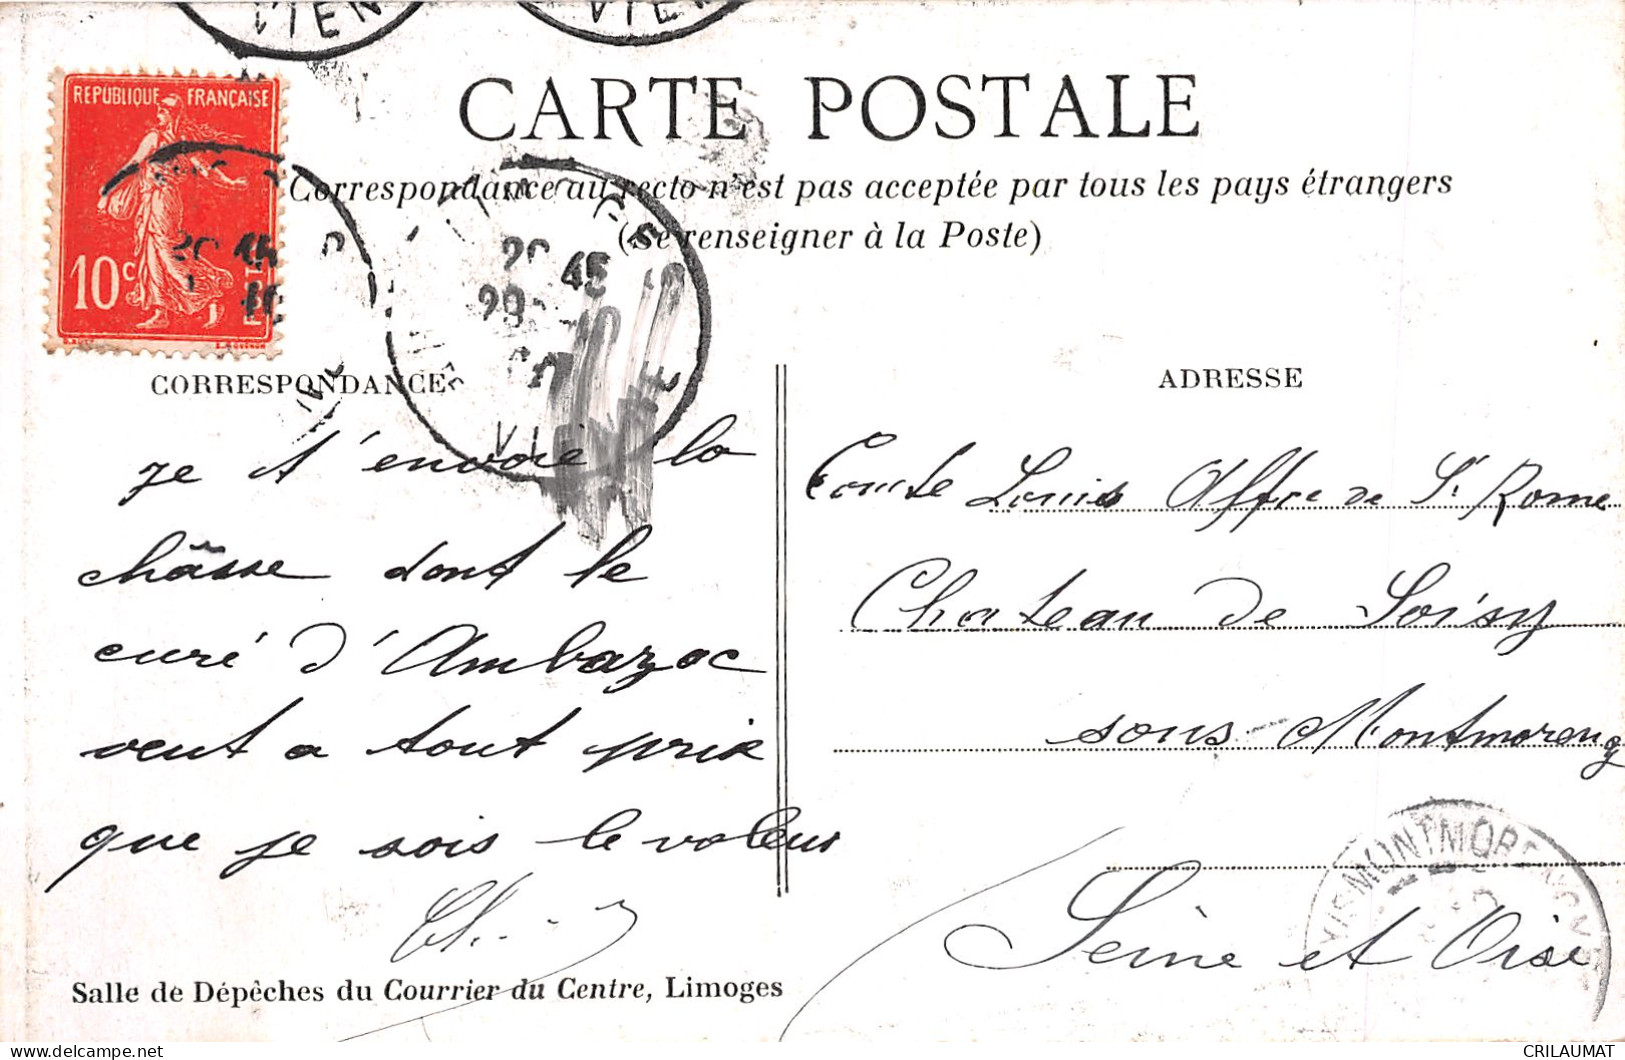 VIEN
VIEN
REPUBLIQUE FRANÇAISE
10c
CARTE POSTALE
Correspondance au recto n'est pas acceptée par tous les pays étrangers
(Se renseigner à la Poste)
20 45
29
VIENNE
CORRESPONDANCE
ADRESSE
je t'envoie la
châsse dont le
curé d'Ambazac
veut a tout prix
que je sois le voleur
Comte Louis Affre de St Rome
Chateau de Soisy
sous-Montmorency
Seine et Oise
MONTMORENCY
Salle de Dépêches du Courrier du Centre, Limoges
CRILAUMAT